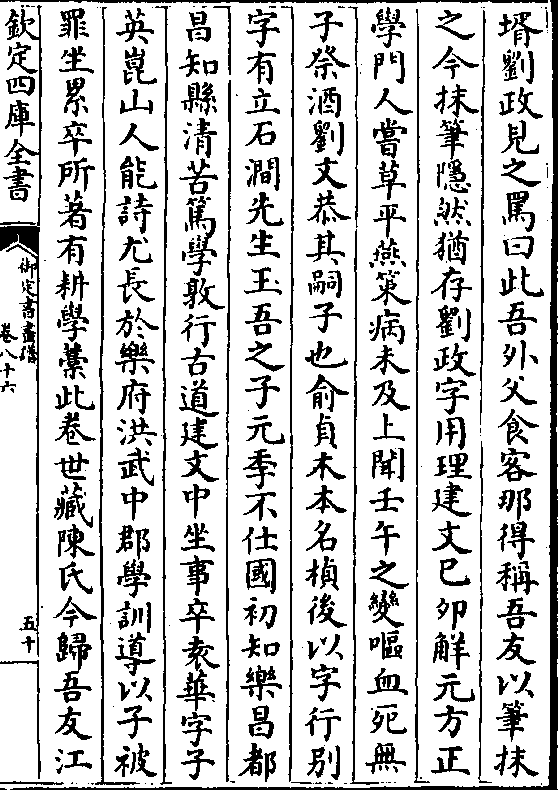 壻劉政見之罵曰此吾外父食客那得稱吾友以筆抹
之今抹筆隱然猶存劉政字用理建文已卯解元方正
學門人嘗草平燕策病未及上聞壬午之變嘔血死無
子祭酒劉文恭其嗣子也俞貞木本名楨後以字行别
字有立石澗先生玉吾之子元季不仕國初知樂昌都
昌知縣清苦篤學敦行古道建文中坐事卒袁華字子
英崑山人能詩尤長於樂府洪武中郡學訓導以子被
罪坐累卒所著有耕學藁此卷世藏陳氏今歸吾友江
欽定四庫全書
御定書畫譜
卷八十六
五十